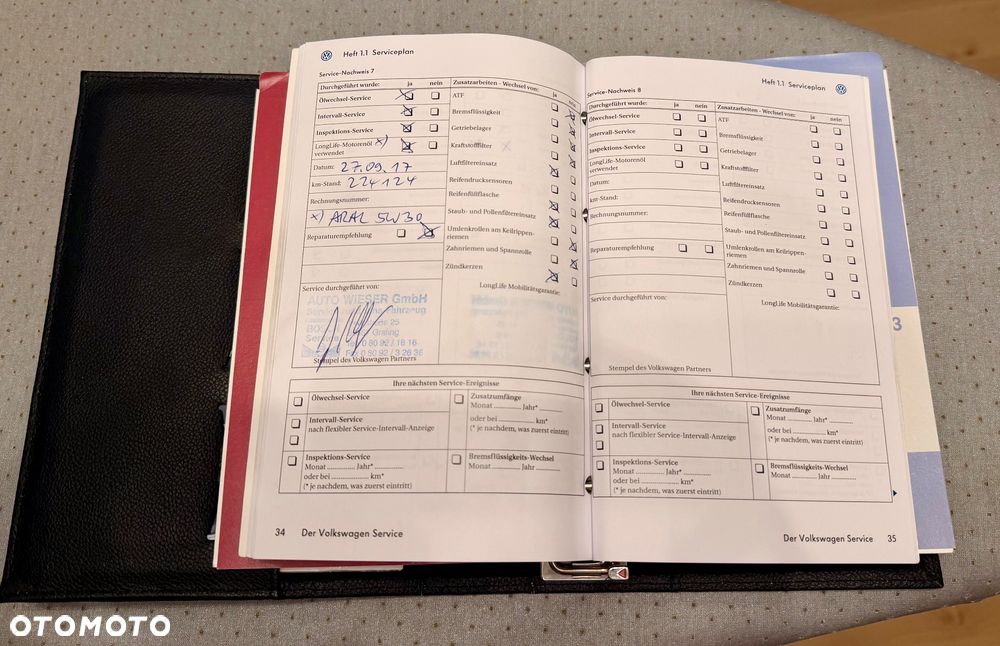 Heft 1.1 Serviceplan
Service-Nachweis 7
Durchgeführt wurde: ja nein
Ölwechsel-Service
Intervall-Service
Inspektions-Service
LongLife-Motorenöl x)
verwendet
Datum: 27.09.17
km-Stand: 224124
Rechnungsnummer:
x) ARAL 5W30
Reparaturempfehlung
Service durchgeführt von:
AUTO WIESER GmbH
25
Tel. 0 80 92 / 18 16
Fax 0 80 92 / 3 26 36
Stempel des Volkswagen Partners
Zusatzarbeiten - Wechsel von: ja
ATF
Bremsflüssigkeit
Getriebelager
Kraftstofffilter x
Luftfiltereinsatz
Reifendrucksensoren
Reifenfüllflasche
Staub- und Pollenfiltereinsatz
Umlenkrollen am Keilrippen-
riemen
Zahnriemen und Spannrolle
Zündkerzen
LongLife Mobilitätsgarantie:
Ihre nächsten Service-Ereignisse
Ölwechsel-Service
Intervall-Service
nach flexibler Service-Intervall-Anzeige
Inspektions-Service
Monat ............ Jahr* ............
oder bei ................ km*
(* je nachdem, was zuerst eintritt)
Zusatzumfänge
Monat ............ Jahr* ............
oder bei ................ km*
(* je nachdem, was zuerst eintritt)
Bremsflüssigkeits-Wechsel
Monat ............ Jahr ............
34 Der Volkswagen Service
Heft 1.1 Serviceplan
Service-Nachweis 8
Durchgeführt wurde: ja nein
Ölwechsel-Service
Intervall-Service
Inspektions-Service
LongLife-Motorenöl
verwendet
Datum:
km-Stand:
Rechnungsnummer:
Reparaturempfehlung
Service durchgeführt von:
Stempel des Volkswagen Partners
Zusatzarbeiten - Wechsel von: ja nein
ATF
Bremsflüssigkeit
Getriebelager
Kraftstofffilter
Luftfiltereinsatz
Reifendrucksensoren
Reifenfüllflasche
Staub- und Pollenfiltereinsatz
Umlenkrollen am Keilrippen-
riemen
Zahnriemen und Spannrolle
Zündkerzen
LongLife Mobilitätsgarantie:
Ihre nächsten Service-Ereignisse
Ölwechsel-Service
Intervall-Service
nach flexibler Service-Intervall-Anzeige
Inspektions-Service
Monat ............ Jahr* ............
oder bei ................ km*
(* je nachdem, was zuerst eintritt)
Zusatzumfänge
Monat ............ Jahr* ............
oder bei ................ km*
(* je nachdem, was zuerst eintritt)
Bremsflüssigkeits-Wechsel
Monat ............ Jahr ............
Der Volkswagen Service 35
3
OTOMOTO